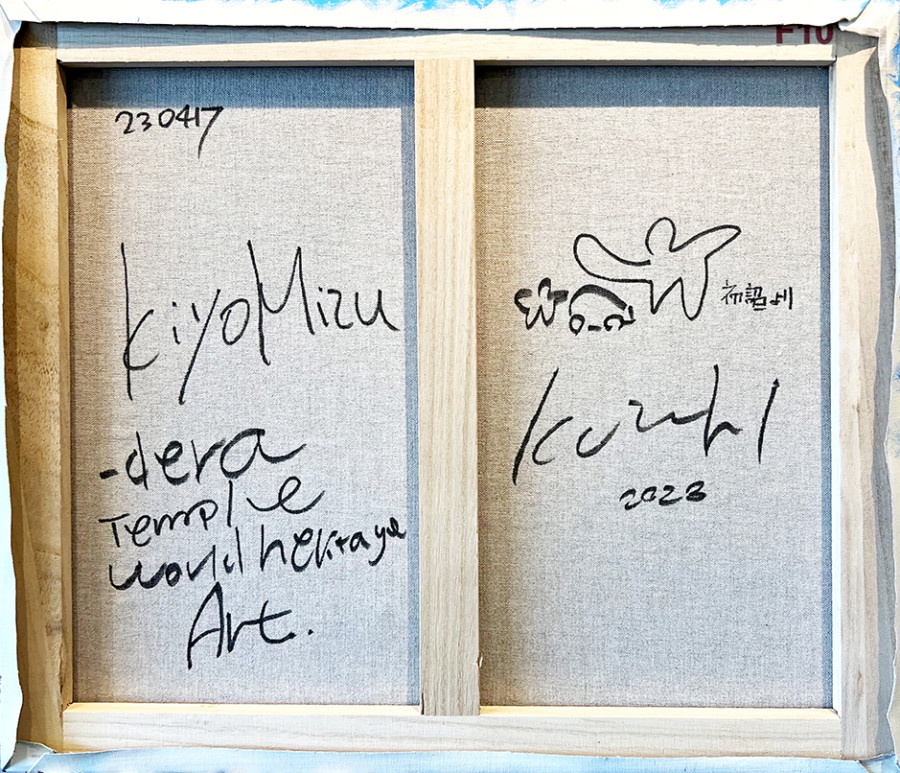 F10
230417
kiyoMizu
-dera
Temple
World heritage
Art.
2023